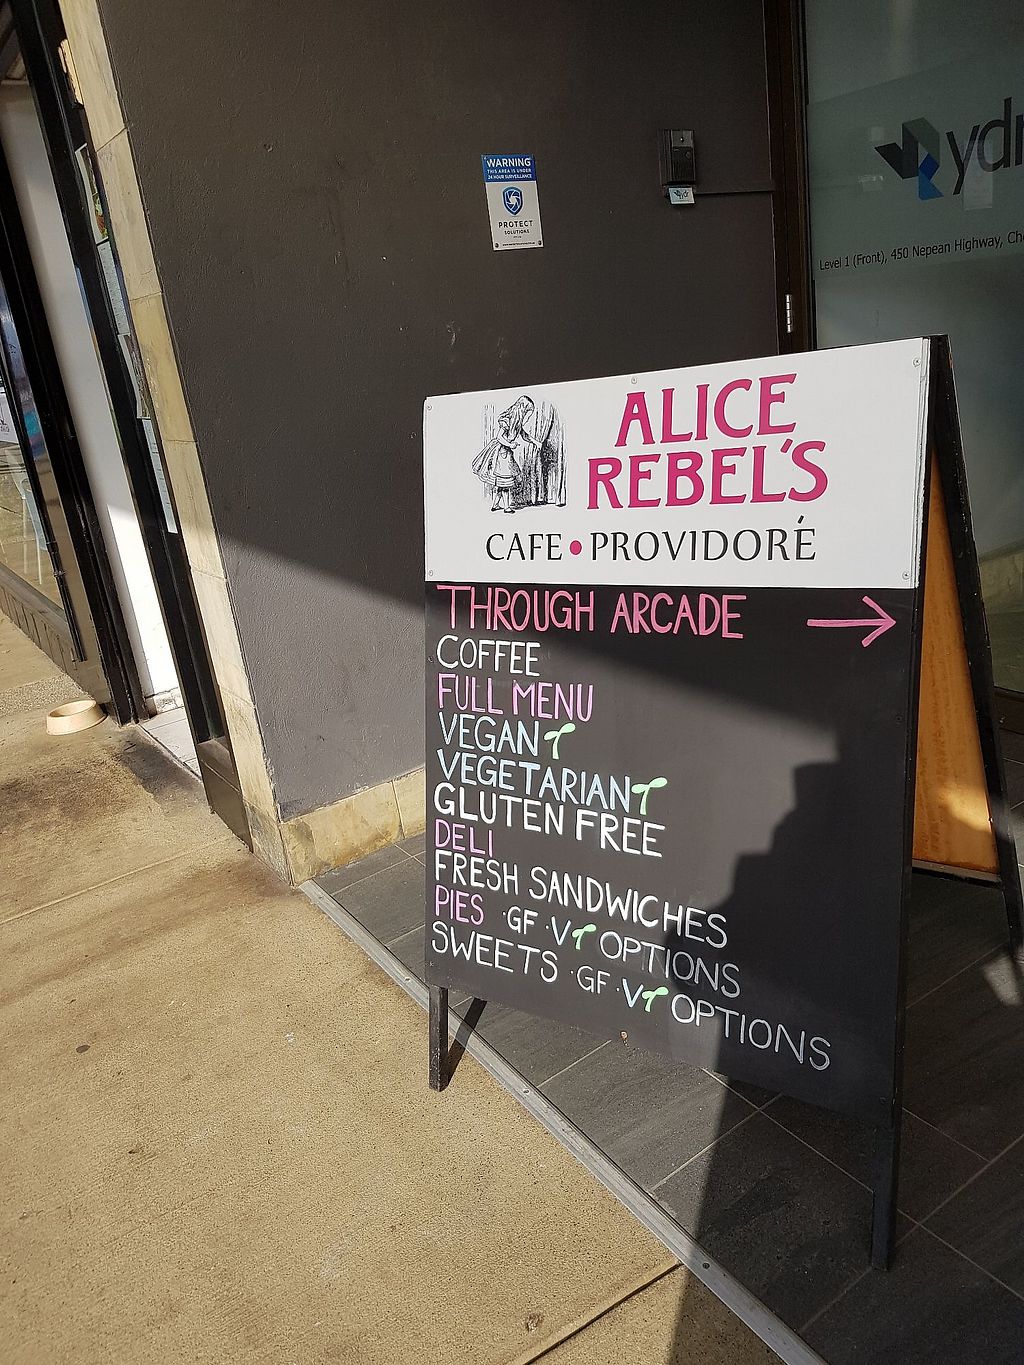 WARNING
THIS AREA IS UNDER
24 HOUR SURVEILLANCE
PROTECT
SOLUTIONS
ydr
Level 1 (Front), 450 Nepean Highway,
ALICE
REBEL'S
CAFE • PROVIDORÉ
THROUGH ARCADE →
COFFEE
FULL MENU
VEGAN
VEGETARIAN
GLUTEN FREE
DELI
FRESH SANDWICHES
PIES · GF · V OPTIONS
SWEETS · GF · V OPTIONS